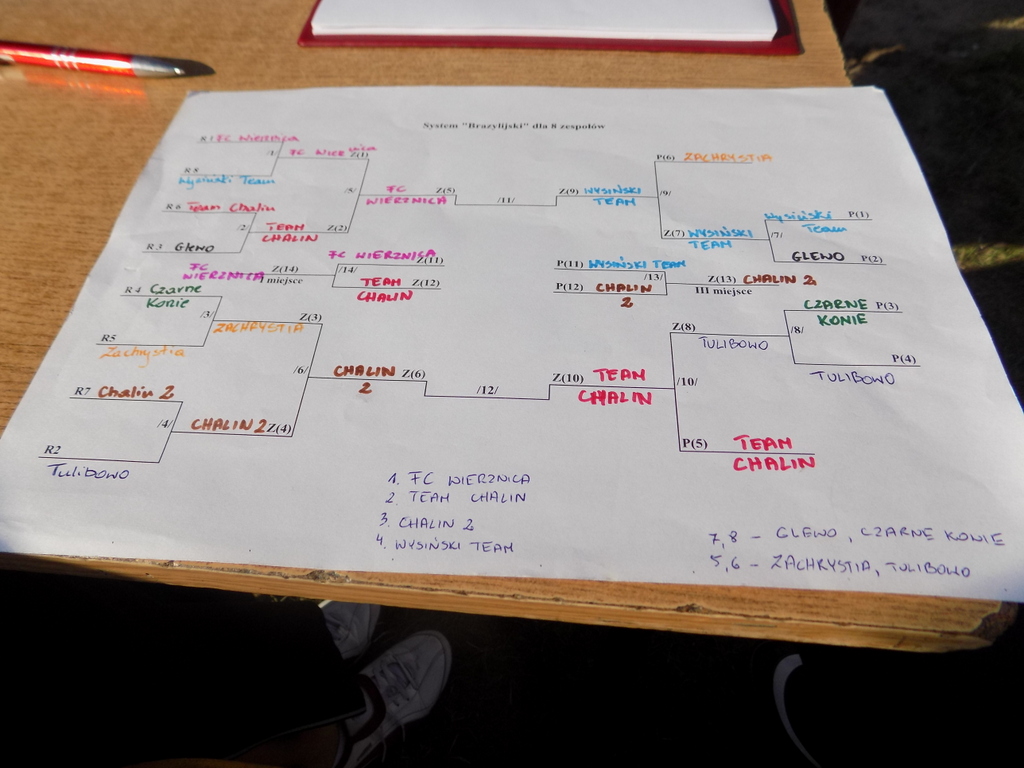 System "Brazylijski" dla 8 zespołów
R1 FC Wierznica
/1/ FC Wierznica Z(1)
R8
Wysiński Team
/5/ FC WIERZNICA Z(5)
R6 Team Chalin
/2/ TEAM CHALIN Z(2)
R3 Glewo
/11/
Z(9) WYSIŃSKI TEAM
P(6) ZACHRYSTIA
/9/
Z(7) WYSIŃSKI TEAM
Wysiński Team P(1)
/7/
GLEWO P(2)
FC WIERZNICA Z(14)
I miejsce
/14/
FC WIERZNICA Z(11)
TEAM CHALIN Z(12)
P(11) WYSIŃSKI TEAM
/13/
P(12) CHALIN 2
Z(13) CHALIN 2
III miejsce
R4 Czarne Konie
/3/ Z(3)
ZACHRYSTIA
R5
Zachrystia
/6/ CHALIN 2 Z(6)
R7 Chalin 2
/4/ CHALIN 2 Z(4)
R2
Tulibowo
/12/
Z(10) TEAM CHALIN
/10/
Z(8)
TULIBOWO
CZARNE KONIE P(3)
/8/
P(4)
TULIBOWO
P(5) TEAM CHALIN
1. FC WIERZNICA
2. TEAM CHALIN
3. CHALIN 2
4. WYSIŃSKI TEAM
7,8 - GLEWO, CZARNE KONIE
5,6 - ZACHRYSTIA, TULIBOWO